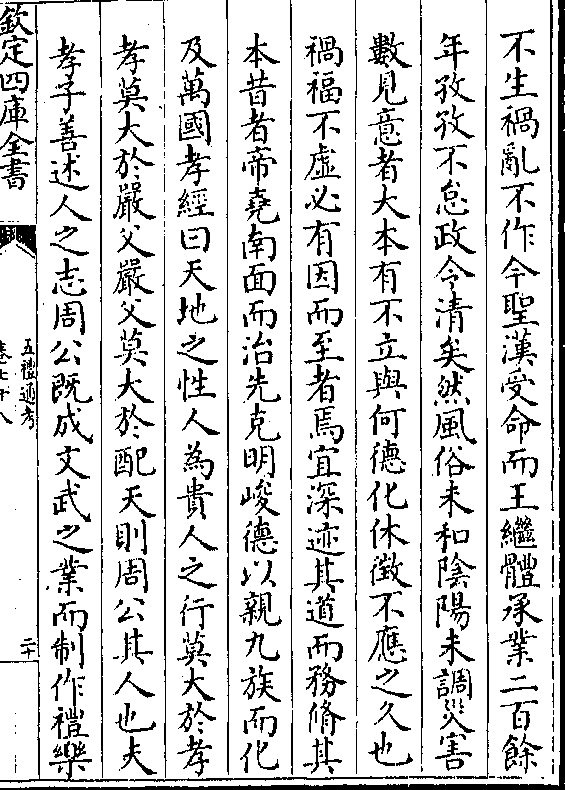 不生禍亂不作今聖漢受命而王繼體承業二百餘
年孜孜不怠政令清矣然風俗未和隂陽未調災害
數見意者大本有不立與何德化休徵不應之久也
禍福不虛必有因而至者焉宜深迹其道而務脩其
本昔者帝堯南面而治先克明峻德以親九族而化
及萬國孝經曰天地之性人為貴人之行莫大於孝
孝莫大於嚴父嚴父莫大於配天則周公其人也夫
孝子善述人之志周公既成文武之業而制作禮樂
欽定四庫全書
五禮通考
卷七十八
二十